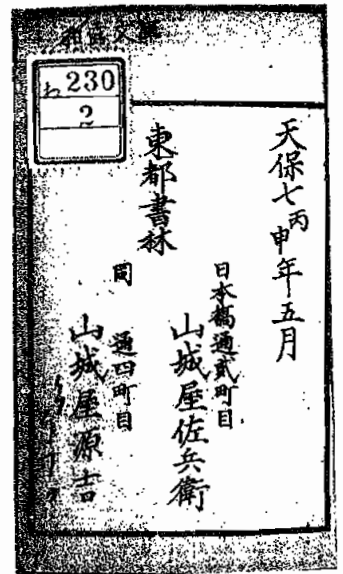 お230
2
天保七丙申年五月
東都書林
日本橋通貳町目
山城屋佐兵衛
同 通四町目
山城屋源吉